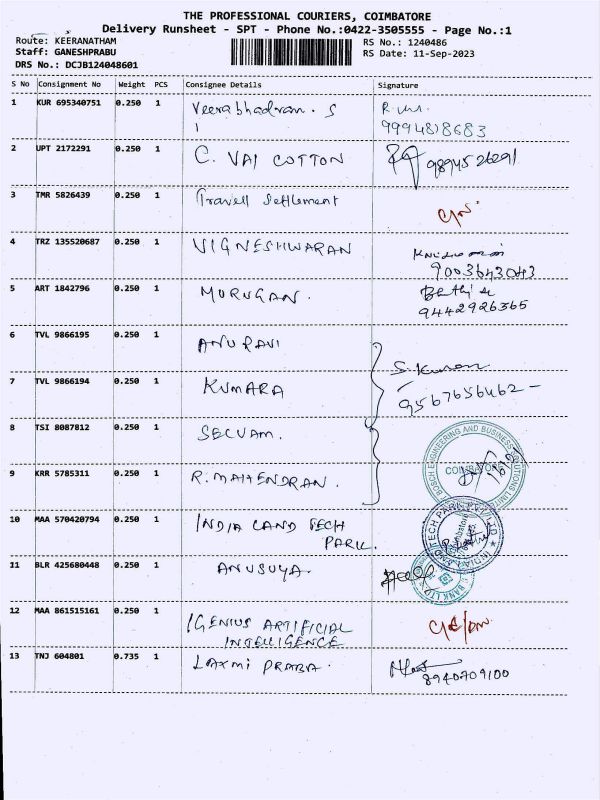 THE PROFESSIONAL COURIERS, COIMBATORE
Delivery Runsheet - SPT - Phone No.:0422-3505555 - Page No.:1
Route: KEERANATHAM
RS No.: 1240486
Staff: GANESHPRABU
RS Date: 11-Sep-2023
DRS No.: DCJB124048601
S No Consignment No Weight PCS Consignee Details Signature
1 KUR 695340751 0.250 1 Veerabhadran. S
9994818683
2 UPT 2172291 0.250 1 C. VAI COTTON 9894526291
3 TMR 5826439 0.250 1 Travell Settlement
4 TRZ 135520687 0.250 1 VIGNESHWARAN
9003643043
5 ART 1842796 0.250 1 MURUGAN.
9442926365
6 TVL 9866195 0.250 1 ANURAVI
S. Kumar
7 TVL 9866194 0.250 1 KUMARA
9567656462 -
8 TSI 8087812 0.250 1 SELVAM.
BOSCH ENGINEERING AND BUSINESS SOLUTIONS LIMITED
COIMBATORE
9 KRR 5785311 0.250 1 R. MAHENDRAN.
10 MAA 570420794 0.250 1 INDIA LAND TECH
PARK.
INDIALAND TECH PARK PVT LTD
Coimbatore
11 BLR 425680448 0.250 1 ANUSUYA.
BANK LTD
12 MAA 861515161 0.250 1 IGENIUS ARTIFICIAL
INTELLIGENCE
13 TNJ 604801 0.735 1 LAXMI PRABA.
8940709100